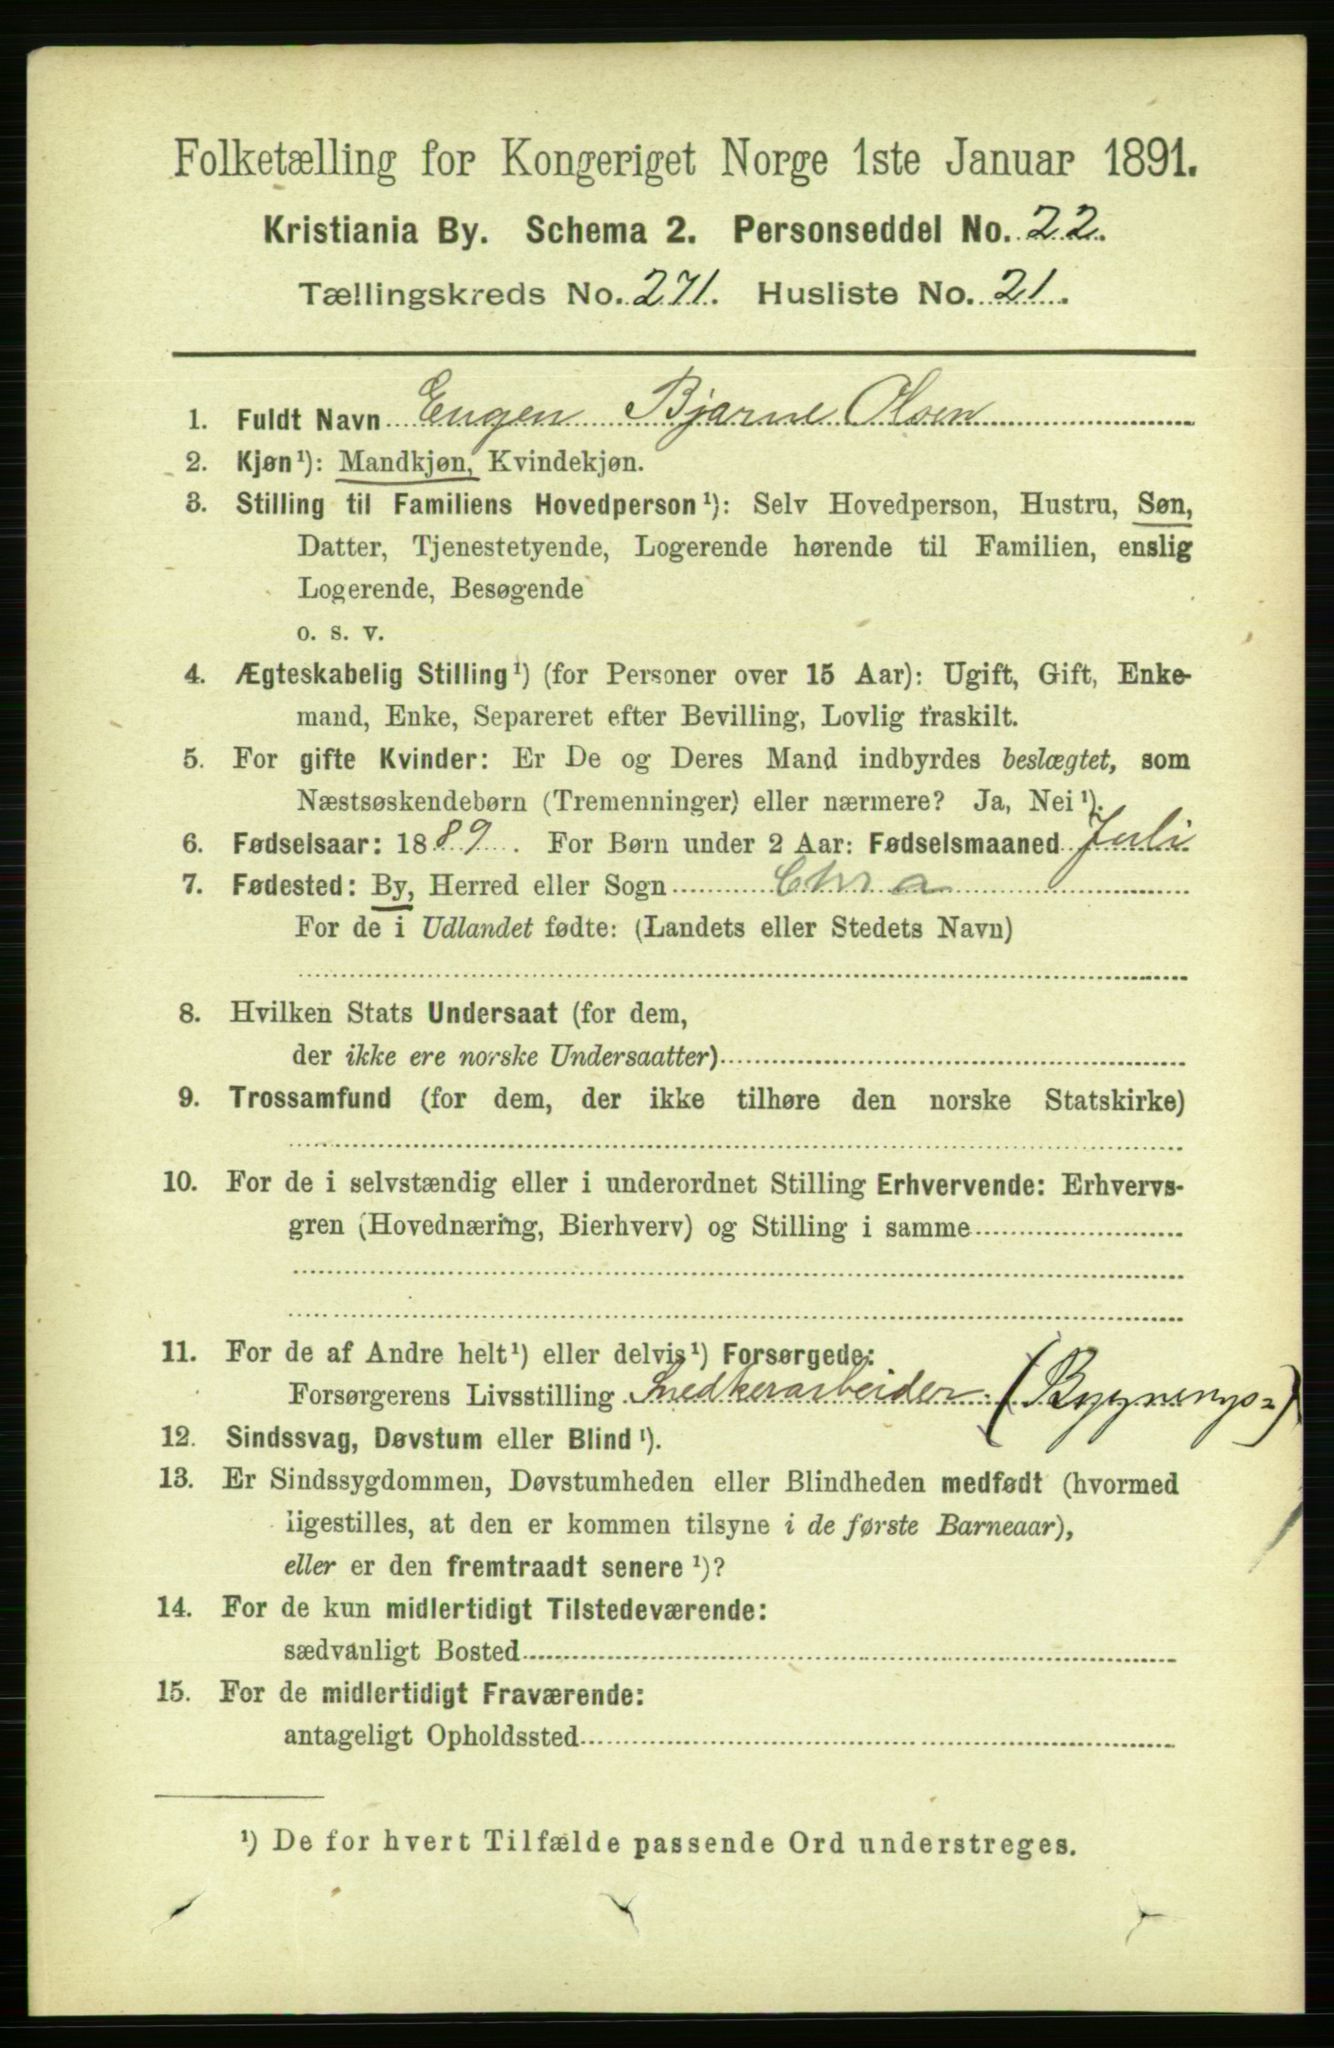 Folketælling for Kongeriget Norge 1ste Januar 1891.
Kristiania By. Schema 2. Personseddel No. 22.
Tællingskreds No. 271. Husliste No. 21.
1. Fuldt Navn Eugen Bjarne Olsen
2. Kjøn¹): Mandkjøn, Kvindekjøn.
3. Stilling til Familiens Hovedperson¹): Selv Hovedperson, Hustru, Søn,
Datter, Tjenestetyende, Logerende hørende til Familien, enslig
Logerende, Besøgende
o. s. v.
4. Ægteskabelig Stilling¹) (for Personer over 15 Aar): Ugift, Gift, Enke-
mand, Enke, Separeret efter Bevilling, Lovlig fraskilt.
5. For gifte Kvinder: Er De og Deres Mand indbyrdes beslægtet, som
Næstsøskendebørn (Tremenninger) eller nærmere? Ja, Nei¹).
6. Fødselsaar: 1889. For Børn under 2 Aar: Fødselsmaaned Juli
7. Fødested: By, Herred eller Sogn Chra
For de i Udlandet fødte: (Landets eller Stedets Navn)
8. Hvilken Stats Undersaat (for dem,
der ikke ere norske Undersaatter)
9. Trossamfund (for dem, der ikke tilhøre den norske Statskirke)
10. For de i selvstændig eller i underordnet Stilling Erhvervende: Erhvervs-
gren (Hovednæring, Bierhverv) og Stilling i samme
11. For de af Andre helt¹) eller delvis¹) Forsørgede:
Forsørgerens Livsstilling Snedkerarbeider (Bygnings-)
12. Sindssvag, Døvstum eller Blind¹).
13. Er Sindssygdommen, Døvstumheden eller Blindheden medfødt (hvormed
ligestilles, at den er kommen tilsyne i de første Barneaar),
eller er den fremtraadt senere¹)?
14. For de kun midlertidigt Tilstedeværende:
sædvanligt Bosted
15. For de midlertidigt Fraværende:
antageligt Opholdssted
¹) De for hvert Tilfælde passende Ord understreges.